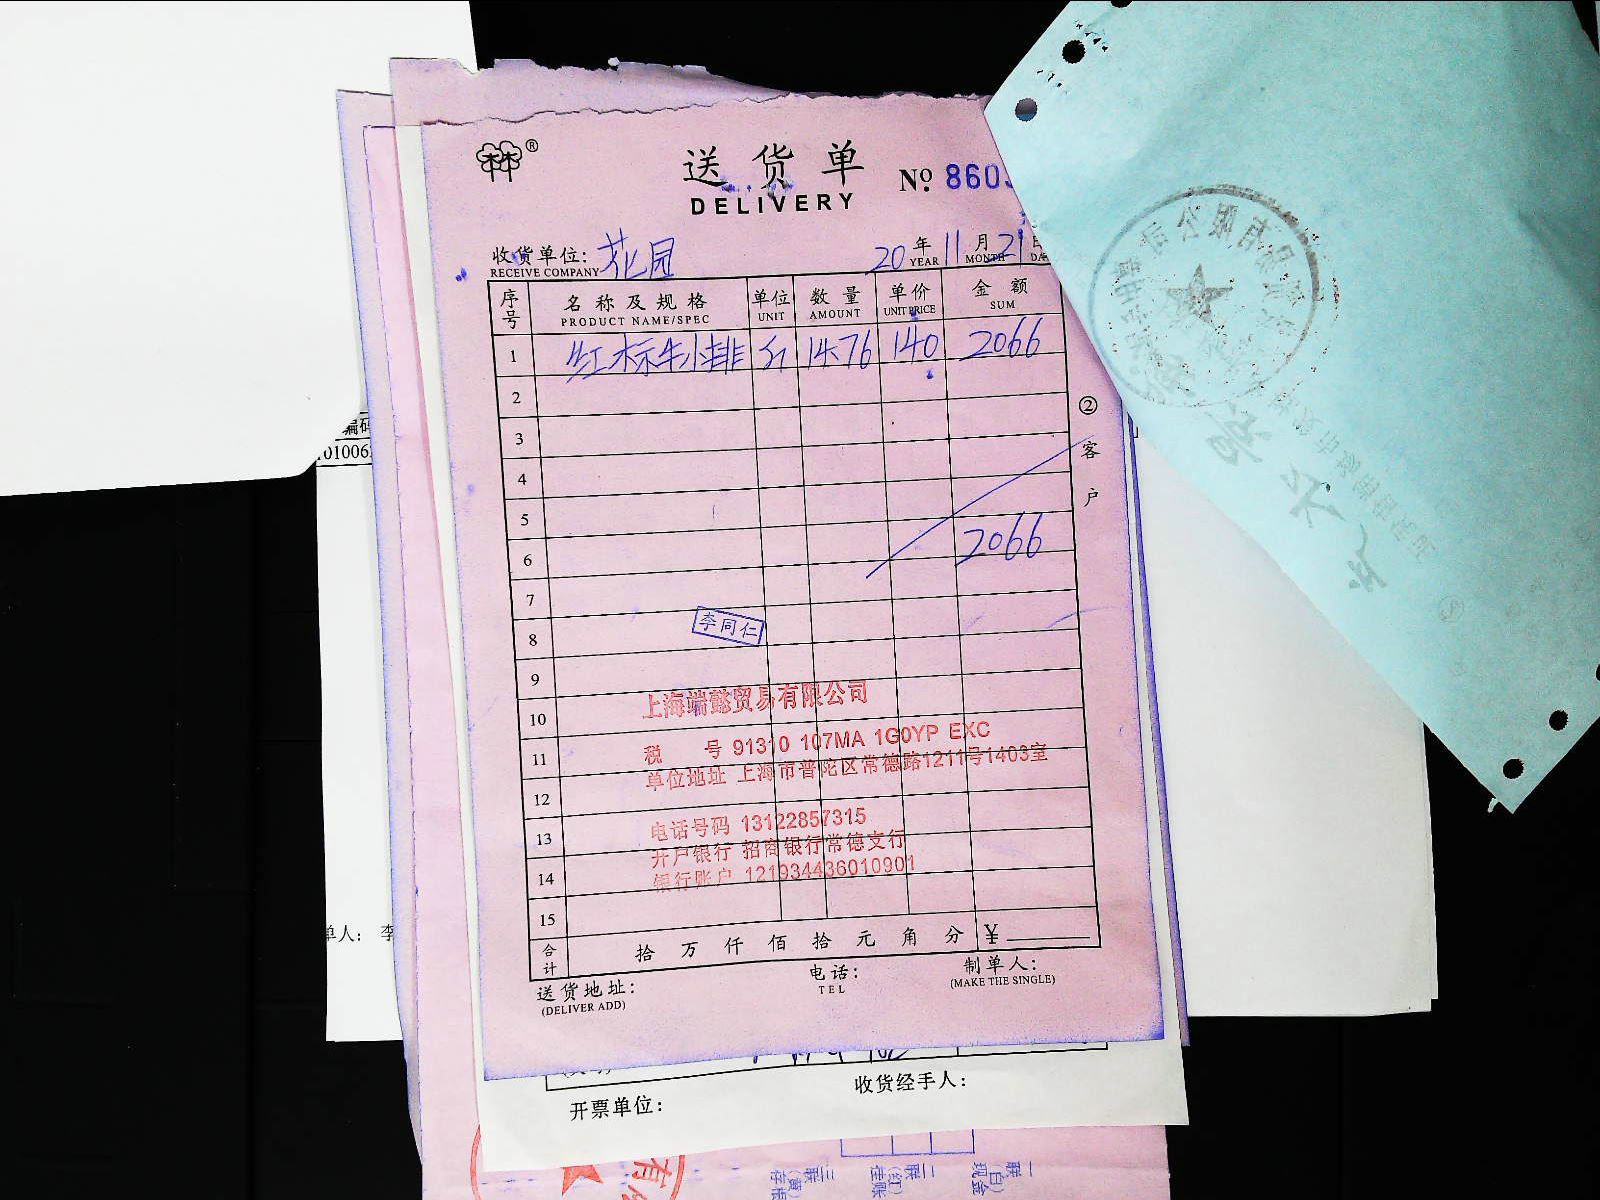 林林®
送货单
№ 8603
DELIVERY
收货单位: 花园
20 年 11 月 21 日
RECEIVE COMPANY YEAR MONTH DA
序号 名称及规格 单位 数量 单价 金额
PRODUCT NAME/SPEC UNIT AMOUNT UNIT PRICE SUM
1 红标牛小排 斤 14.76 140 2066
2
3
4
5
6 2066
7
8
9
10
11
12
13
14
15
② 客户
李同仁
上海端懿贸易有限公司
税 号 91310 107MA 1G0YP EXC
单位地址 上海市普陀区常德路1211号1403室
电话号码 13122857315
开户银行 招商银行常德支行
银行账户 121934436010901
合计 拾 万 仟 佰 拾 元 角 分 ¥
送货地址: 电话: 制单人:
(DELIVER ADD) TEL (MAKE THE SINGLE)
编码
01006
单人: 李
收货经手人:
开票单位: